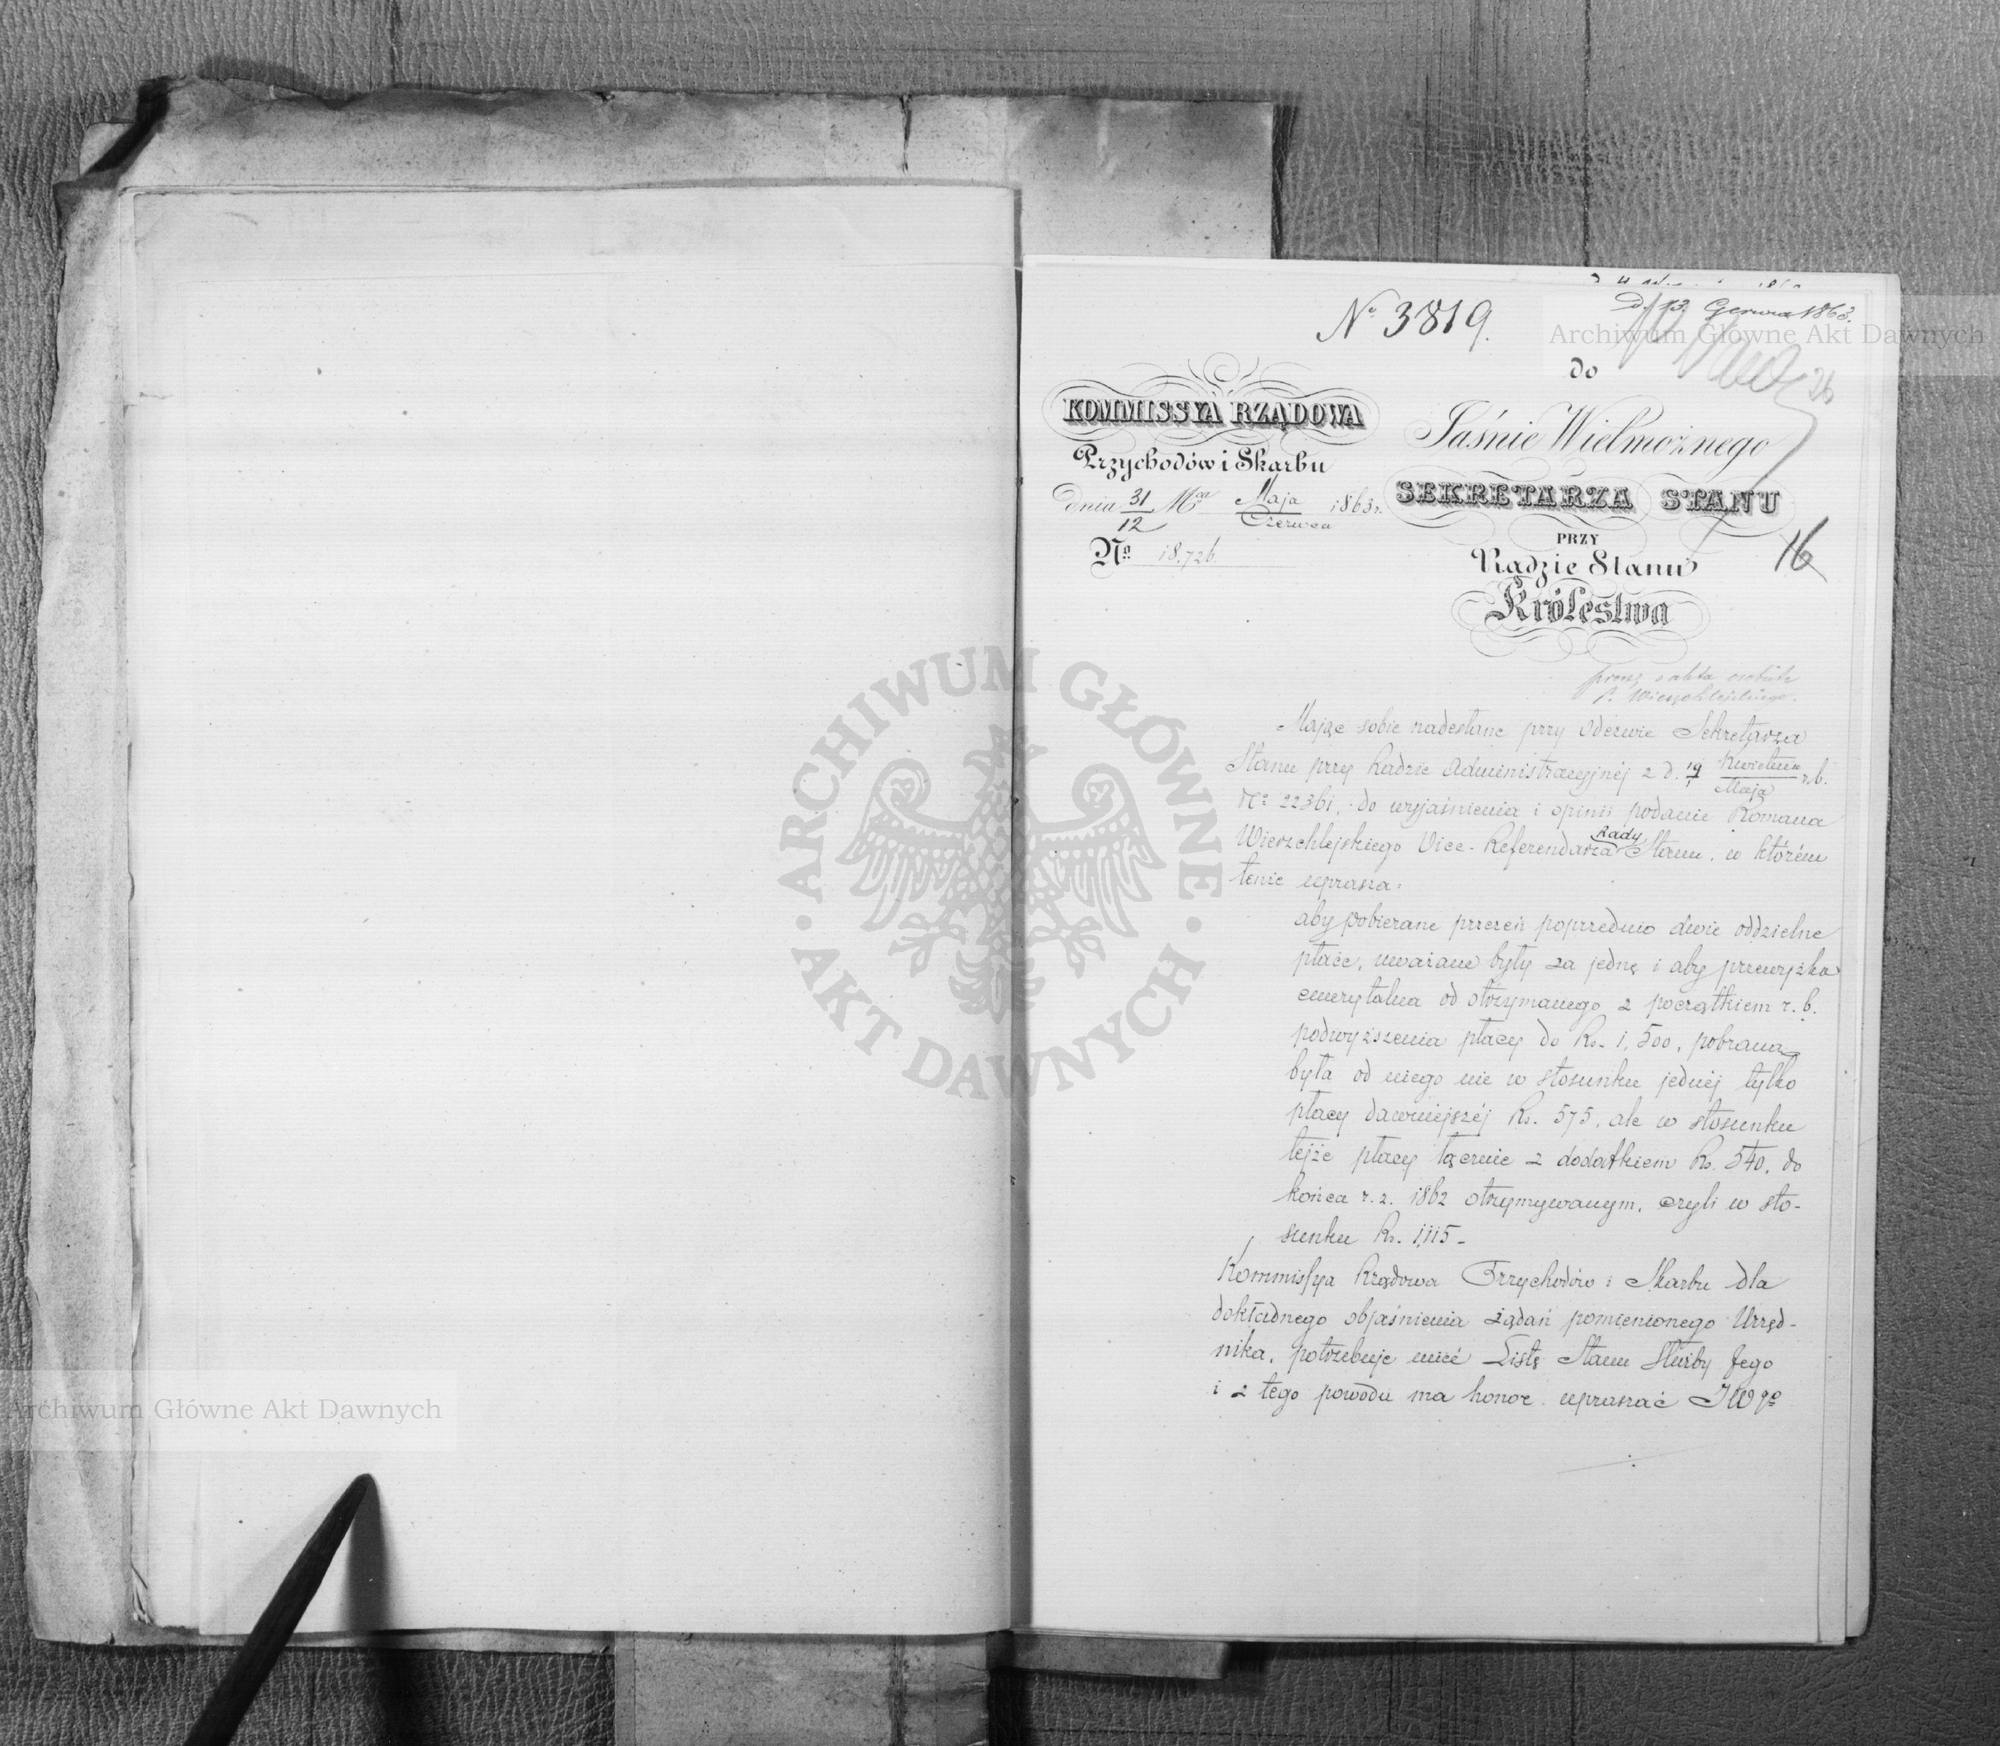 No 3819.
D. 13 Czerwca 1863.
do
KOMMISSYA RZĄDOWA
Przychodów i Skarbu
dnia 31/12 Mca Maja/Czerwca 1863 r.
No 18,726.
Jaśnie Wielmożnego
SEKRETARZA STANU
PRZY
Radzie Stanu
Królestwa
16
akta osobiste
P. Wierzchlejskiego.
Mając sobie nadesłane przy odezwie Sekretarza
Stanu przy Radzie Administracyjnej z d. 19/1 Kwietnia/Maja r.b.
No 22361, do wyjaśnienia i opinii podanie Romana
Wierzchlejskiego Vice-Referendarza Rady Stanu, w którem
tenże uprasza:
aby pobierane przezeń poprzednio dwie oddzielne
płace, uważane były za jednę i aby przewyżka
emerytalna od otrzymanego z początkiem r. b.
podwyższenia płacy do Rs. 1,500, pobrana
była od niego nie w stosunku jednej tylko
płacy dawniejszej Rs. 575, ale w stosunku
tejże płacy łącznie z dodatkiem Rs. 540, do
końca r. z. 1862 otrzymywanym, czyli w sto-
sunku Rs. 1,115 -
Kommissya Rządowa Przychodów i Skarbu dla
dokładnego objaśnienia żądań pomienionego Urzęd-
nika, potrzebuje mieć Listę Stanu Służby Jego
i z tego powodu ma honor upraszać JWgo
Archiwum Główne Akt Dawnych
Archiwum Główne Akt Dawnych
ARCHIWUM GŁÓWNE
AKT DAWNYCH